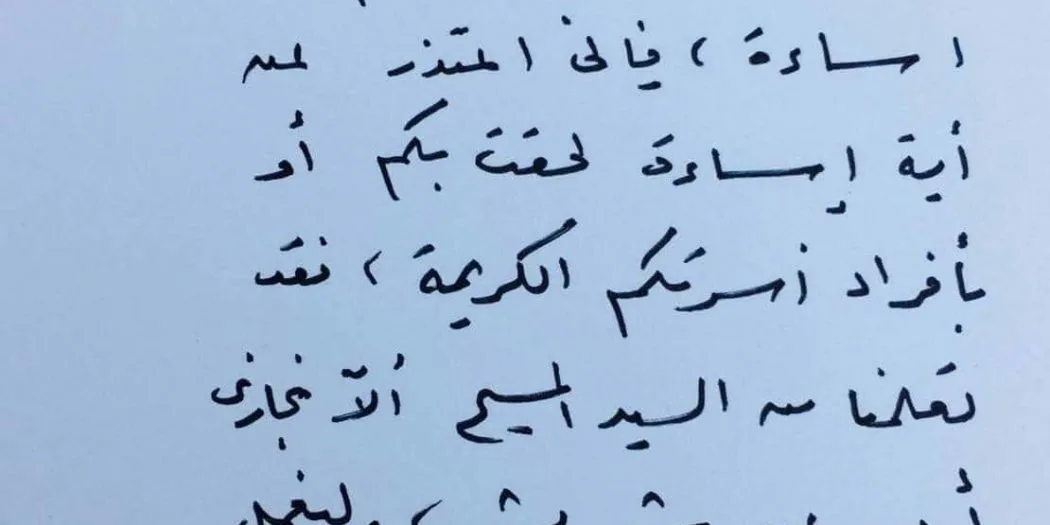 اساءة ، فإني اعتذر لكم
أية إساءة لحقت بكم أو
بأفراد أسرتكم الكريمة ، فقد
تعلمنا من السيد المسيح ألاّ نجازى